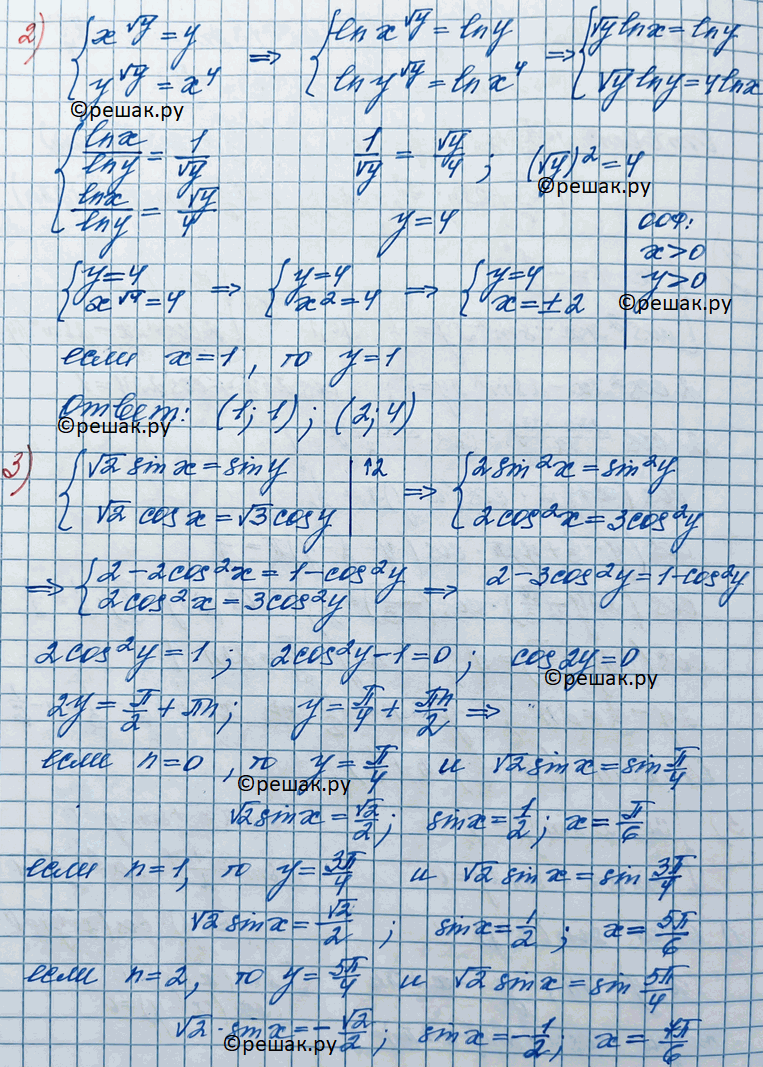 2) { x^√y = y ⇒ { ln x^√y = ln y ⇒ { √y ln x = ln y
y^√y = x⁴ ln y^√y = ln x⁴ √y ln y = 4 ln x
©решак.ру
{ ln x / ln y = 1/√y 1/√y = √y/4 ; (√y)² = 4
©решак.ру
ln x / ln y = √y/4 y = 4 ООФ:
x > 0
y > 0
{ y = 4 ⇒ { y = 4 ⇒ { y = 4
x^√4 = 4 x² = 4 x = ±2
©решак.ру
если x = 1, то y = 1
Ответ: (1; 1); (2; 4)
©решак.ру
3) { √2 sin x = sin y | ↑2 ⇒ { 2 sin²x = sin²y
√2 cos x = √3 cos y 2cos²x = 3cos²y
⇒ { 2 - 2cos²x = 1 - cos²y ⇒ 2 - 3cos²y = 1 - cos²y
2cos²x = 3cos²y
2cos²y = 1; 2cos²y - 1 = 0; cos 2y = 0
©решак.ру
2y = π/2 + πn; y = π/4 + πn/2 ⇒
если n = 0, то y = π/4 и √2 sin x = sin π/4
©решак.ру
√2 sin x = √2/2; sin x = 1/2; x = π/6
если n = 1, то y = 3π/4 и √2 sin x = sin 3π/4
√2 sin x = √2/2; sin x = 1/2; x = 5π/6
если n = 2, то y = 5π/4 и √2 sin x = sin 5π/4
√2 · sin x = -√2/2; sin x = -1/2; x = 7π/6
©решак.ру